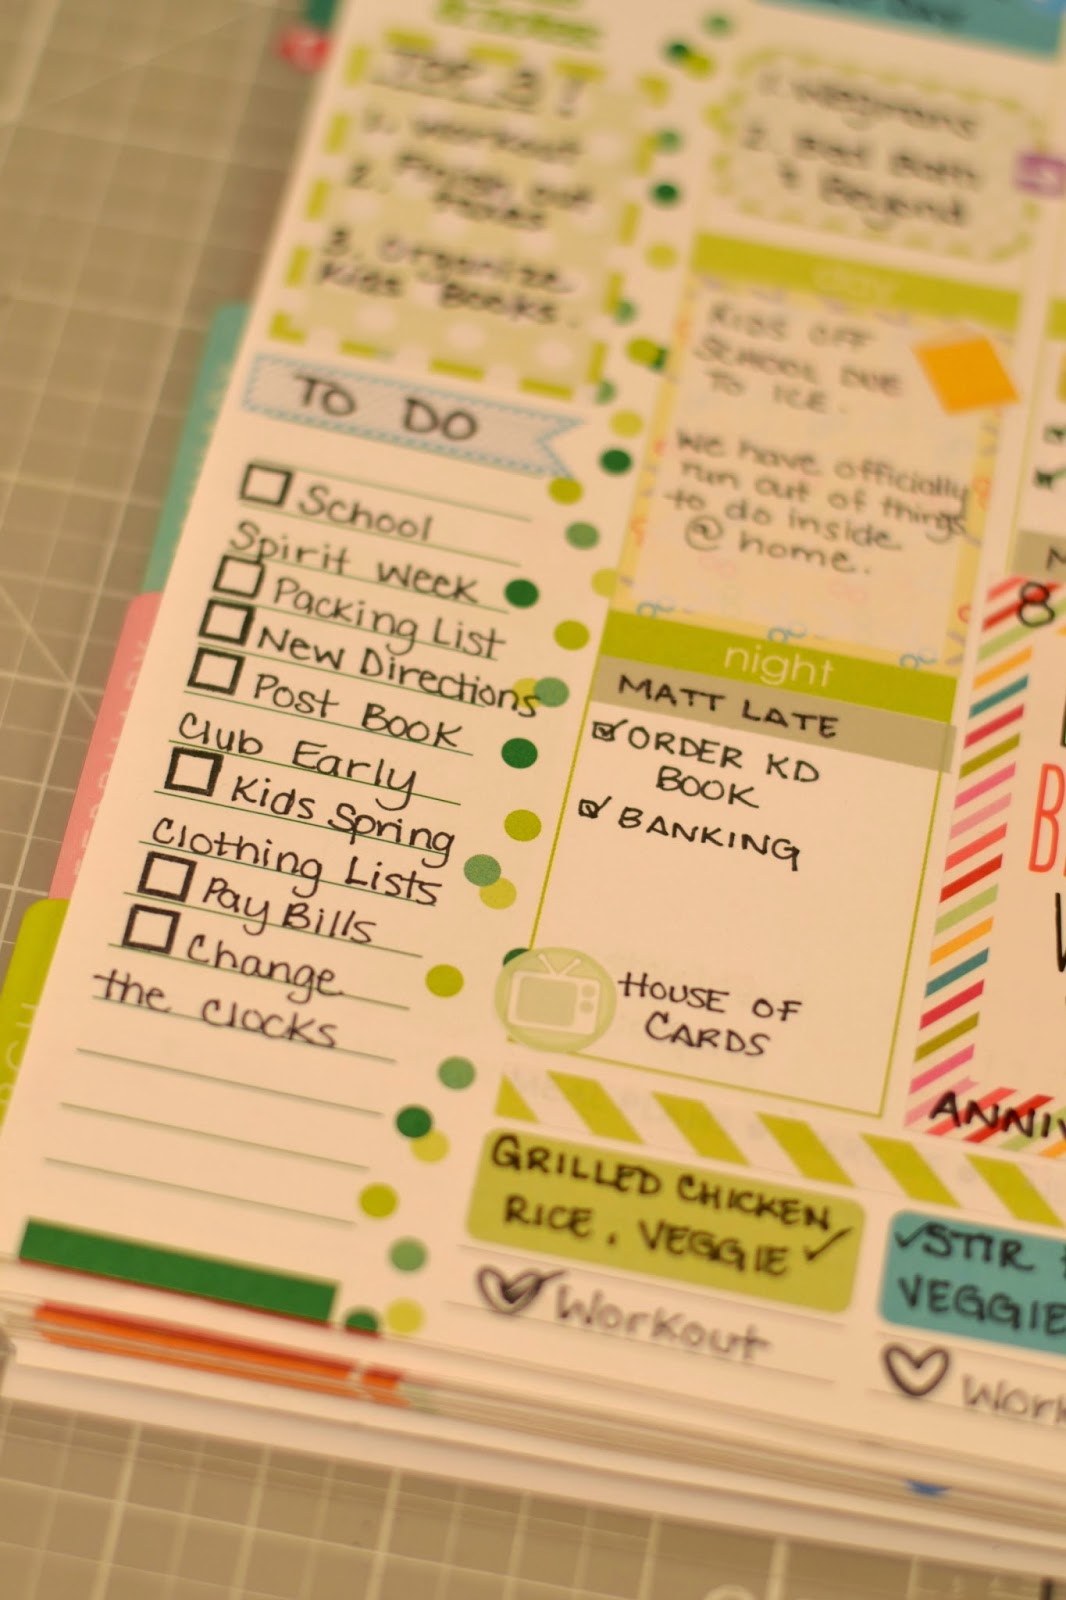 TOP 3!
1. Workout
2.
3. Organize
Kids Books.
TO DO
School
Spirit Week
Packing List
New Directions
Post Book
Club Early
Kids Spring
Clothing Lists
Pay Bills
Change
the clocks
1. Wegmans
2. Bed Bath
& Beyond
day
KIDS OFF
SCHOOL DUE
TO ICE.
We have officially
run out of things
to do inside
@ home.
night
MATT LATE
ORDER KD
BOOK
BANKING
HOUSE OF
CARDS
GRILLED CHICKEN,
RICE, VEGGIE
Workout
8
ANNIV
STIR
VEGGIE
Work